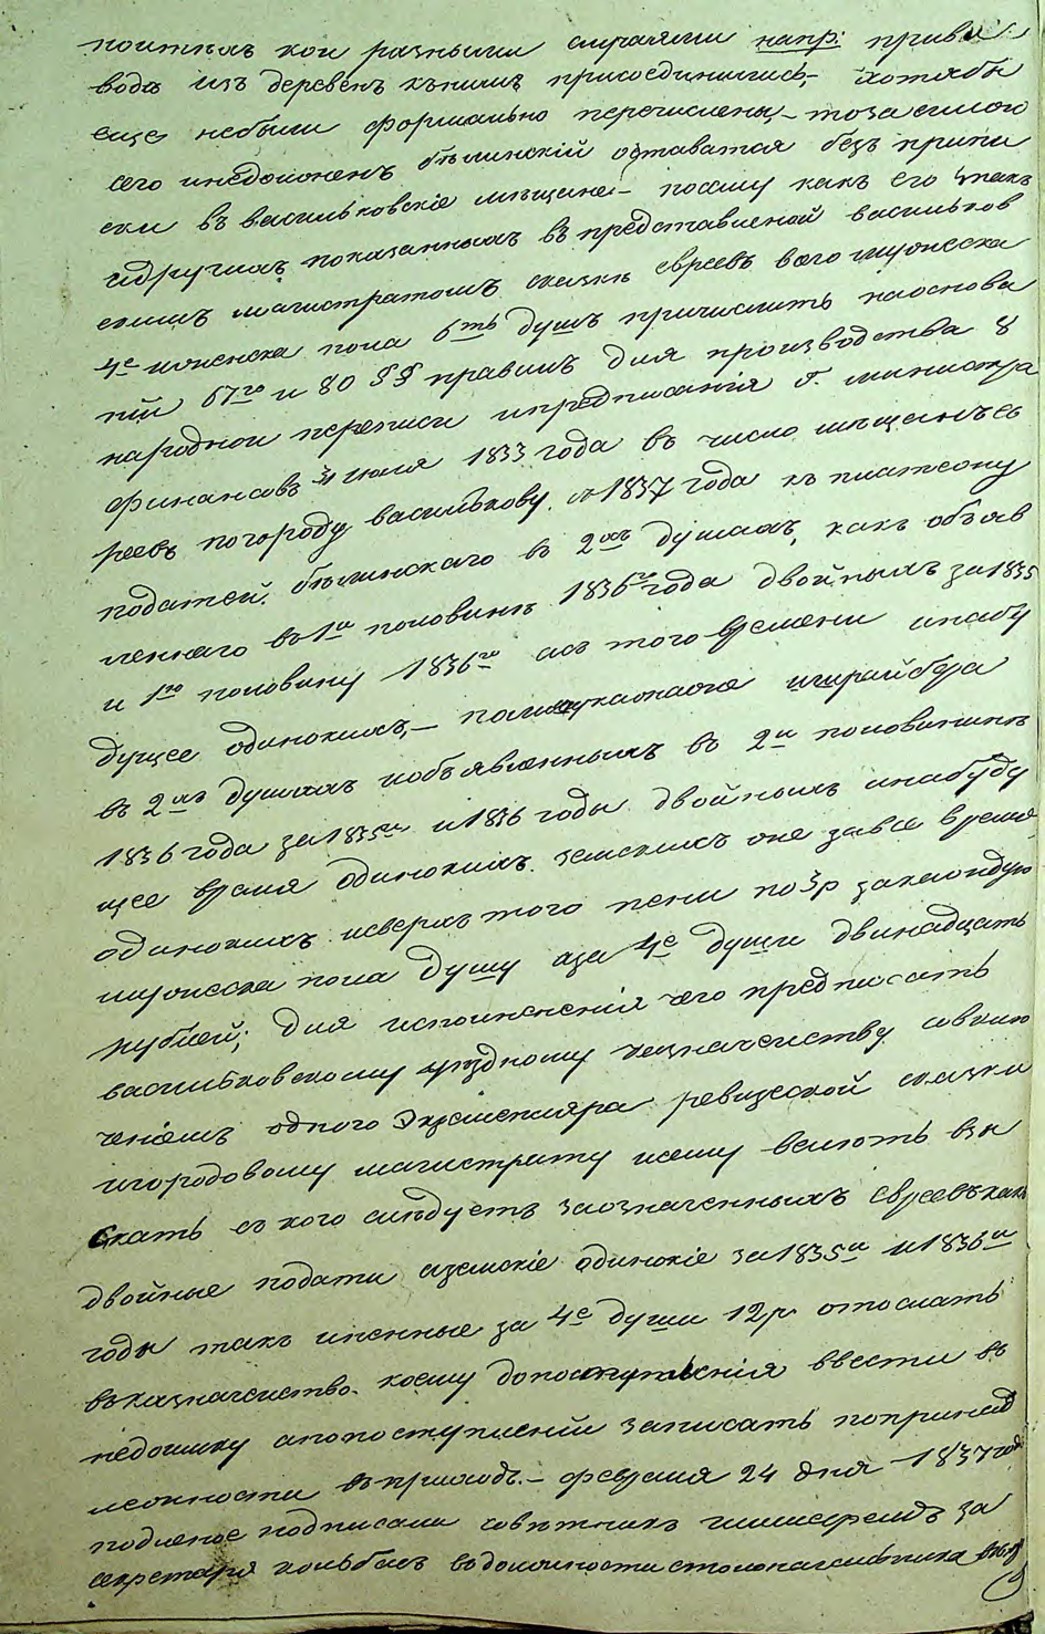 поиткахъ кои разными случаями напр: приво
водъ изъ деревень къ нимъ присоединились, – хотябы
еще небыли формально перечислены, – тоза силою
сего инедолженъ Бѣлинскій оставатся безъ припи
ски въ васильковскіе мѣщане – посему какъ его такъ
идругихъ показанныхъ въ представленой васильков
скимъ магистратомъ сказкѣ евреевъ всего мужеска
4е иженска пола 6ть душъ причислить наоснова
ніи 67го и 80 §§ правилъ для производства 8
народной переписи ипредписанія г. министра
финансовъ 31 июля 1833 года въ число мѣщанъ ев
реевъ погороду василькову. съ 1837 года къ платежу
податей. Бѣлинскаго въ 2хъ душахъ, какъ объяв
леннаго въ 1й половинѣ 1836го года двойныхъ за 1835
и 1ю половину 1836го асъ того времени инабу
дущее одинокихъ, – и
въ 2хъ душахъ необъявленныхъ въ 2й половинѣ
1836 года за 1835й и 1836 годы двойныхъ инабуду
щее время одинокихъ. земскихъ оне завсе время
одинокихъ исверхъ того пени по 3р закаждую
мужеска пола душу аза 4е души двинадцать
рублей; для исполненія чего предписать
васильковскому уѣздному казначейству совклю
ченіемъ одного экземпляра ревизской сказки
игородовому магистрату коему велѣть взы
скать съ кого слѣдуетъ заозначенныхъ евреевъ какъ
двойные подати аземскіе одинокіе за 1835й и 1836й
годы такъ ипенные за 4е души 12р отослать
въказначейство. коему допоступленія ввести въ
недоимку апопоступленіи записать попринад
лежности въприходъ. – февраля 24 дня 1837 года
подленое подписали совѣтникъ за
секретаря вдолжности столоначальника